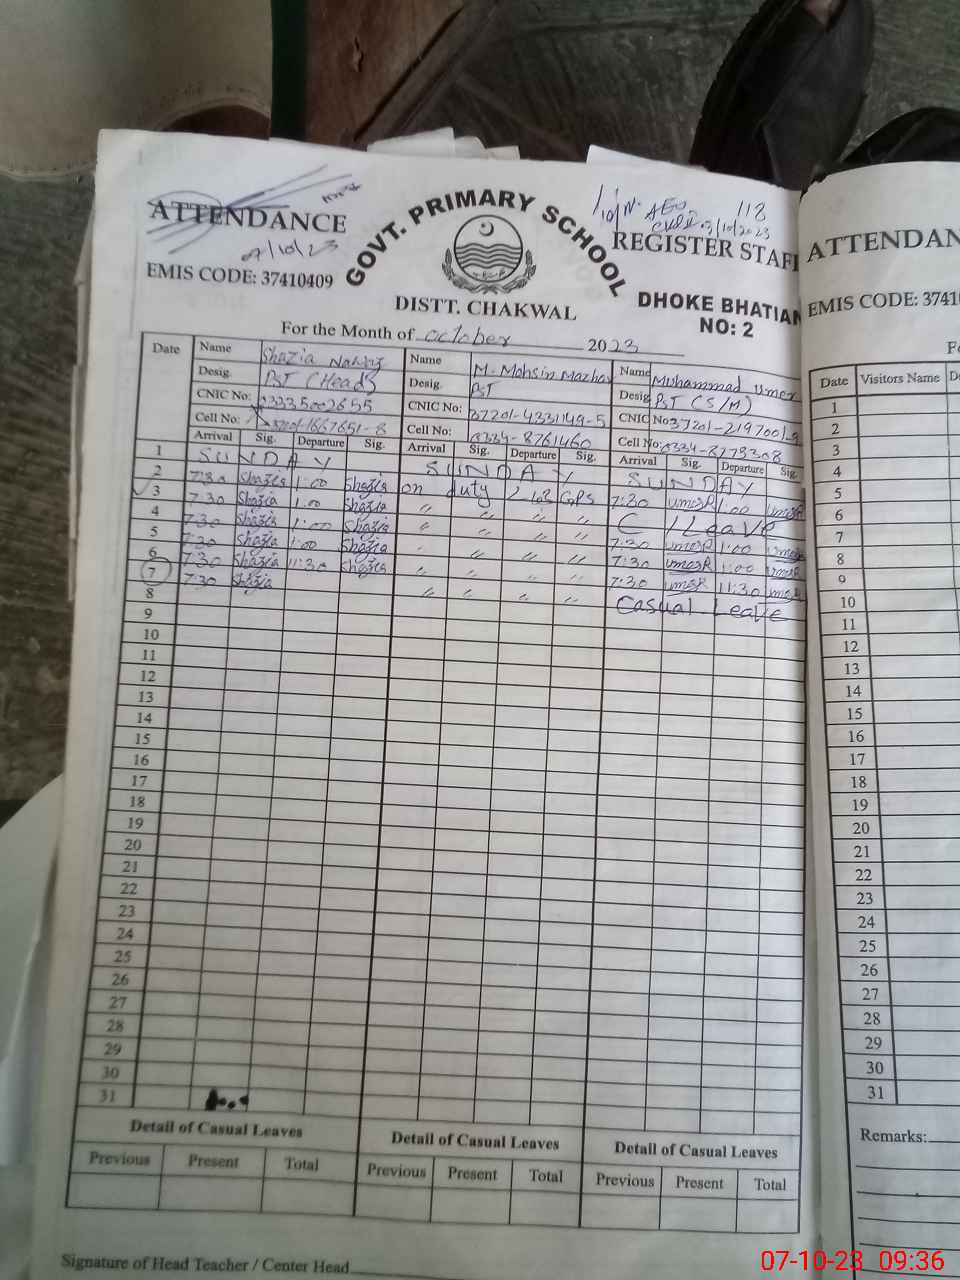 ATTENDANCE
7/10/23
EMIS CODE: 37410409
GOVT. PRIMARY SCHOOL
DISTT. CHAKWAL
AEO 118
3/10/2023
REGISTER STAFF
DHOKE BHATIAN
NO: 2
For the Month of October 2023
Date Name Shazia Nawaz Name M. Mohsin Mazhar Name Muhammad Umer
Desig. PST (Head) Desig. PST Desig. PST (S/M)
CNIC No: 03335002655 CNIC No: 37201-4331149-5 CNIC No: 37201-2197001-9
Cell No: 37201-1667651-8 Cell No: 0334-8761460 Cell No: 0334-8779308
Arrival Sig. Departure Sig. Arrival Sig. Departure Sig. Arrival Sig. Departure Sig.
1 SUNDAY SUNDAY SUNDAY
2 7:30 Shazia 1:00 Shazia on duty GPS 7:30 umer 1:00 umer
3 7:30 Shazia 1:00 Shazia " " " " C / Leave
4 7:30 Shazia 1:00 Shazia " " " " 7:30 umer 1:00 umer
5 7:30 Shazia 1:00 Shazia " " " " 7:30 umer 1:00 umer
6 7:30 Shazia 11:30 Shazia " " " " 7:30 umer 11:30 umer
7 7:30 Shazia " " " " Casual Leave
8
9
10
11
12
13
14
15
16
17
18
19
20
21
22
23
24
25
26
27
28
29
30
31
Detail of Casual Leaves Detail of Casual Leaves Detail of Casual Leaves
Previous Present Total Previous Present Total Previous Present Total
Signature of Head Teacher / Center Head
ATTENDAN
EMIS CODE: 3741
Fo
Date Visitors Name D
1
2
3
4
5
6
7
8
9
10
11
12
13
14
15
16
17
18
19
20
21
22
23
24
25
26
27
28
29
30
31
Remarks:
07-10-23 09:36